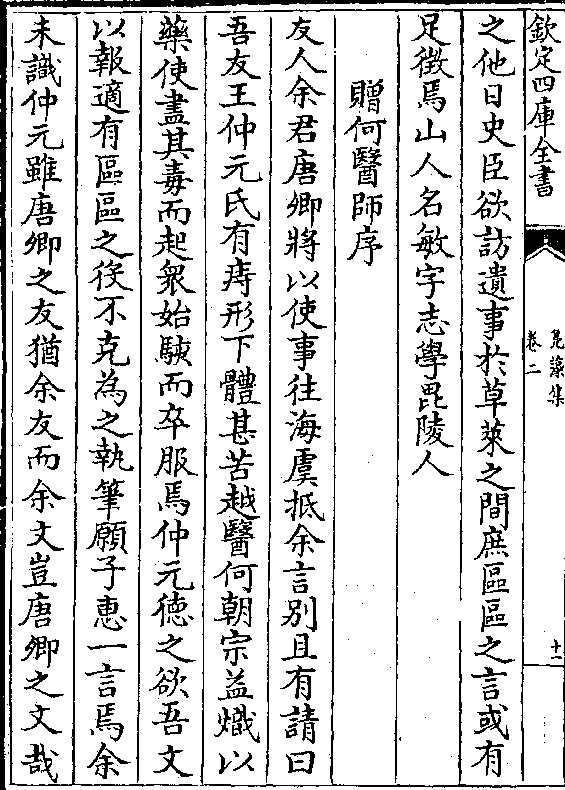 欽定四庫全書
鳧藻集
卷二
十一
之他日史臣欲訪遺事於草萊之間庶區區之言或有
足徴焉山人名敏字志學毘陵人
贈何醫師序
友人余君唐卿將以使事往海虞抵余言別且有請曰
吾友王仲元氏有痔形下體甚苦越醫何朝宗益熾以
藥使盡其毒而起衆始駭而卒服焉仲元徳之欲吾文
以報適有區區之役不克為之執筆願子惠一言焉余
未識仲元雖唐卿之友猶余友而余文豈唐卿之文哉